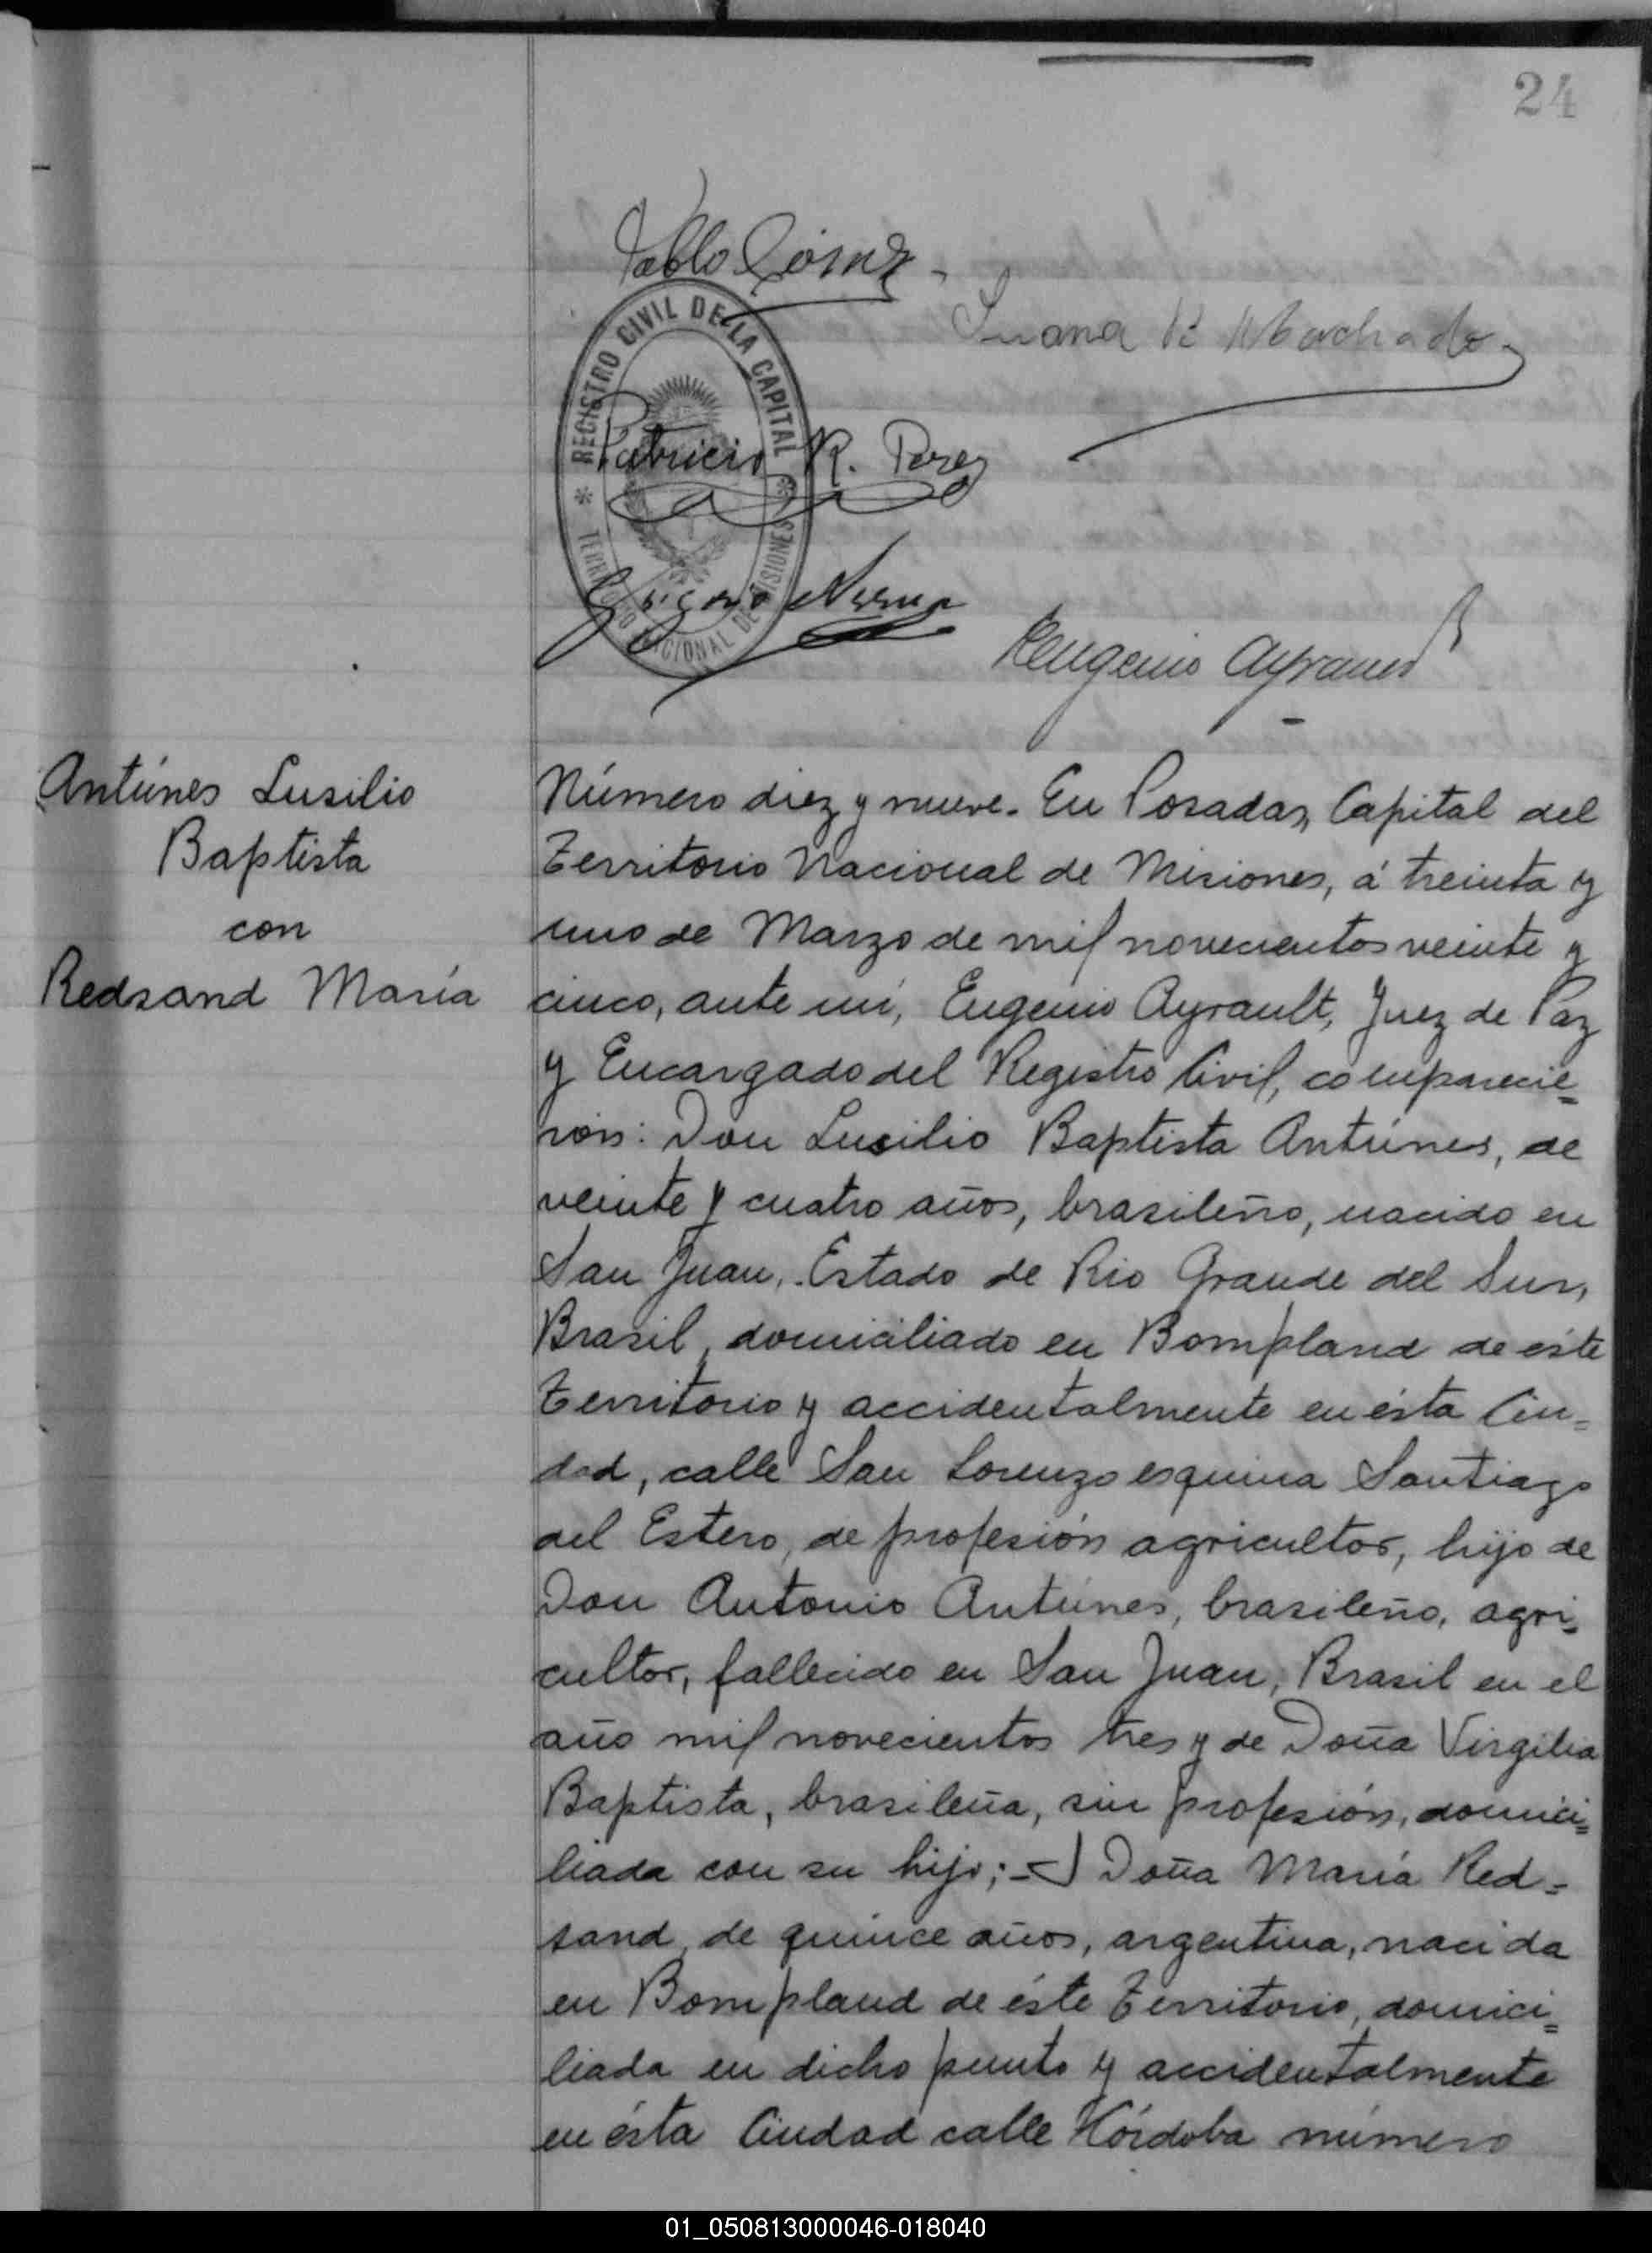 24
Pablo Gómez
Juana R Machado
REGISTRO CIVIL DE LA CAPITAL
Patricio R. Perez
TERRITORIO NACIONAL DE MISIONES
Eugenio Ayrault
Antúnes Lusilio
Baptista
con
Redsand María
Número diez y nueve. En Posadas, Capital del
Territorio Nacional de Misiones, á treinta y
uno de Marzo de mil novecientos veinte y
cinco, ante mí, Eugenio Ayrault, Juez de Paz
y Encargado del Registro Civil, comparecie=
ron: Don Lusilio Baptista Antúnes, de
veinte y cuatro años, brasileño, nacido en
San Juan, Estado de Rio Grande del Sur,
Brasil, domiciliado en Bompland de éste
Territorio y accidentalmente en ésta Ciu=
dad, calle San Lorenzo esquina Santiago
del Estero, de profesión agricultor, hijo de
Don Antonio Antúnes, brasileño, agri=
cultor, fallecido en San Juan, Brasil en el
año mil novecientos tres y de Doña Virgilia
Baptista, brasileña, sin profesión, domici=
liada con su hijo; = Doña María Red=
sand, de quince años, argentina, nacida
en Bompland de éste Territorio, domici=
liada en dicho punto y accidentalmente
en ésta Ciudad calle Córdoba número
01_050813000046-018040